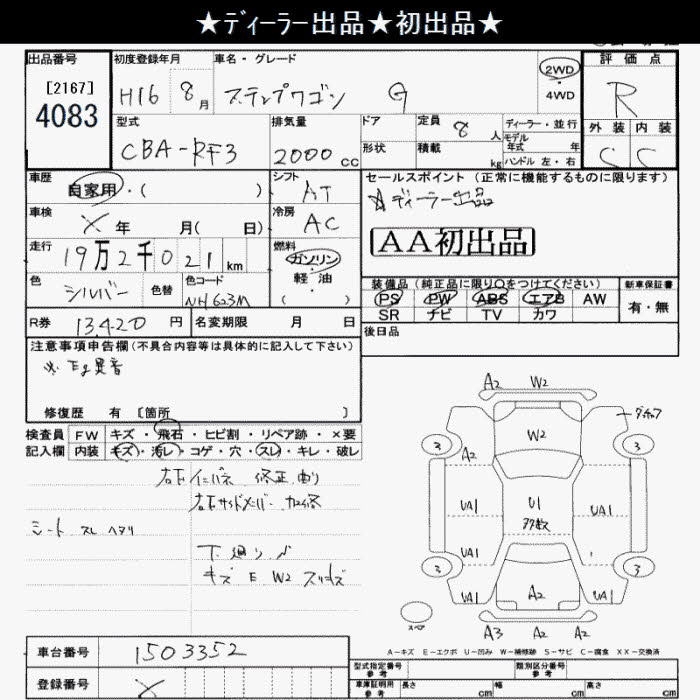 ★ディーラー出品★初出品★
出品番号 初度登録年月 車名・グレード 評価点
[2167] H16 8月 ステップワゴン G 2WD R
4083 ・4WD
型式 排気量 ドア 定員 8人 ディーラー・並行 外装 内装
CBA-RF3 2000cc 形状 積載 kg モデル年式 年 C C
ハンドル 左・右
車歴 自家用・( ) シフト AT セールスポイント (正常に機能するものに限ります)
☆ディーラー出品
車検 × 年 月( 日) 冷房 AC
AA初出品
走行 19万2千021km 燃料 ガソリン
軽・油
( )
色 シルバー 色替 色コード NH623M
装備品 (純正品に限り○をつけてください) 新車保証書
PS PW ABS エアB AW 有・無
SR ナビ TV カワ
R券 13,420円 名変期限 月 日
後日品
注意事項申告欄 (不具合内容等は具体的に記入して下さい)
※ Eg異音
修復歴 有 〔箇所 〕
検査員 FW キズ・飛石・ヒビ割・リペア跡・×要
記入欄 内装 キズ・汚レ・コゲ・穴・スレ・キレ・破レ
右F インパネ 修正 曲り
右Fサイドメンバー 加修
シート スレ ヘタリ
下廻り
キズ E W2 スリキズ
A2 W2
W2
A2
3 3
UA1 U1 UA1
多数
UA1
3 3
UA1 A2 UA1
スペア
A3 A2 A2
A-キズ E-エクボ U-凹み W-補修跡 S-サビ C-腐食 XX-交換済
車台番号 1503352
型式指定番号 参考 類別区分番号 参考
登録番号 ×
車庫証明用 参考 長さ cm 幅 cm 高さ cm